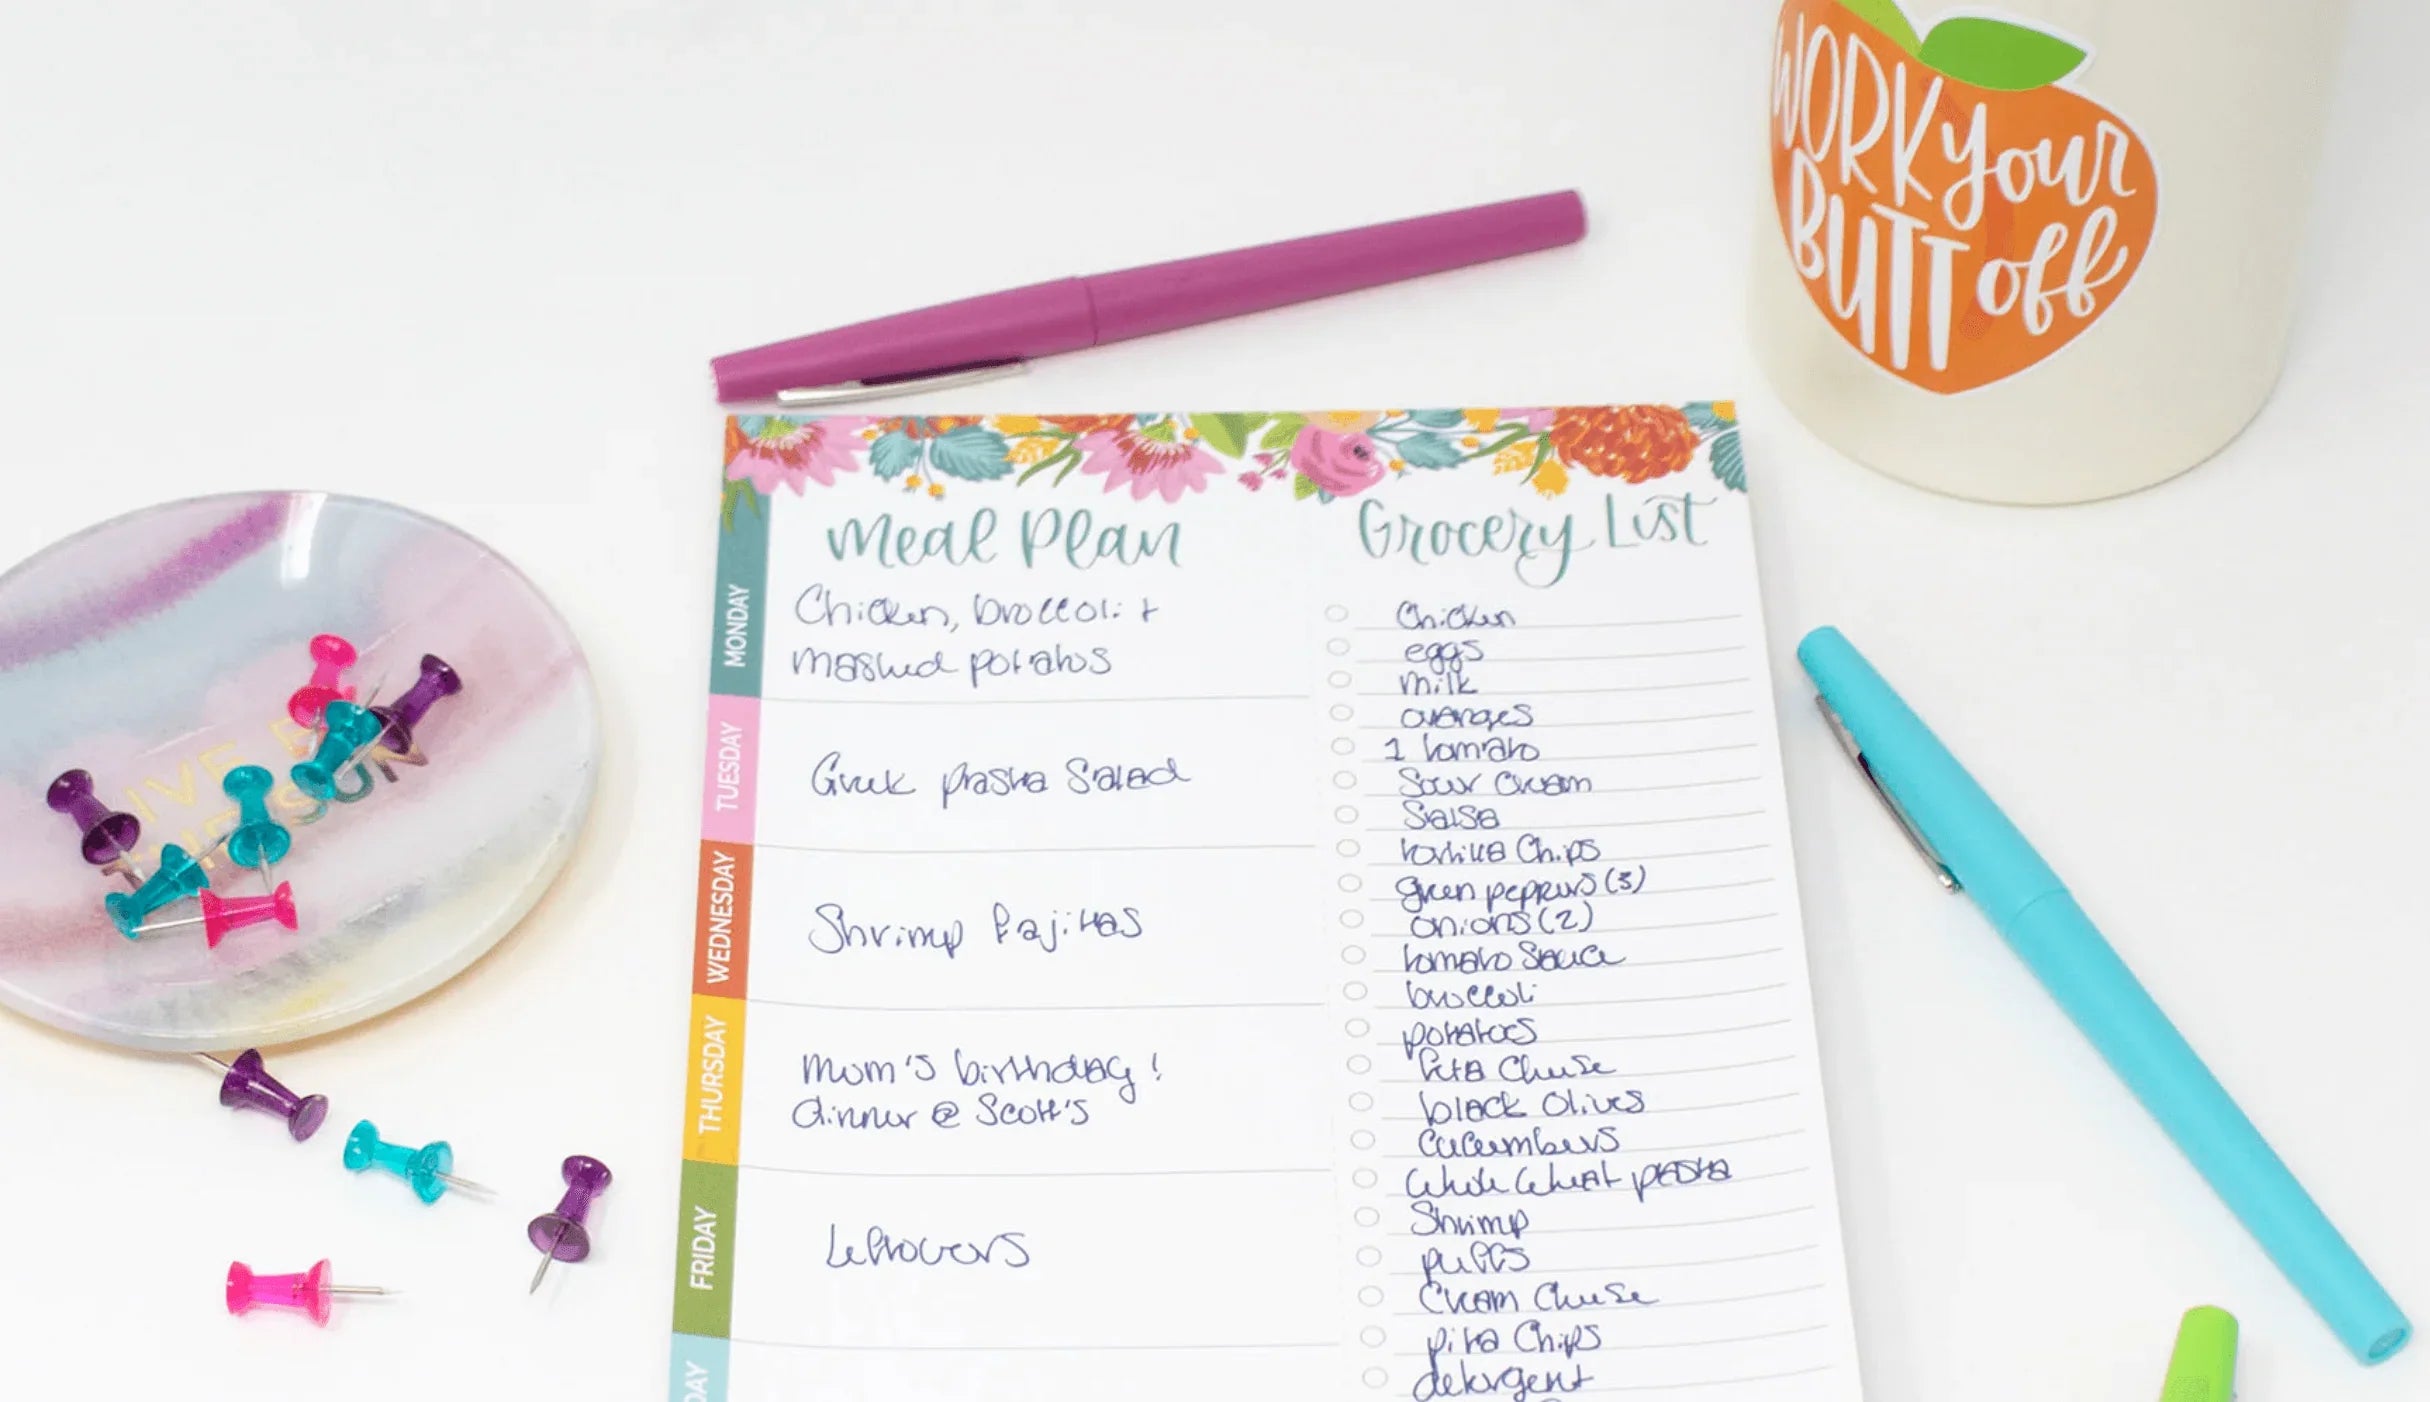 WORK your
BUTT off
Meal Plan
MONDAY
Chicken, broccoli +
mashed potatos
TUESDAY
Greek pasta Salad
WEDNESDAY
Shrimp fajitas
THURSDAY
mom's birthday!
dinner @ Scott's
FRIDAY
Leftovers
DAY
Grocery List
Chicken
eggs
milk
oranges
1 tomato
Sour Cream
Salsa
tortilla Chips
green peppers (3)
onions (2)
tomato Sauce
broccoli
potatoes
feta Cheese
black Olives
Cucumbers
Whole Wheat pasta
Shrimp
puffs
Cream Cheese
pita Chips
detergent
LIVE
THE SUN